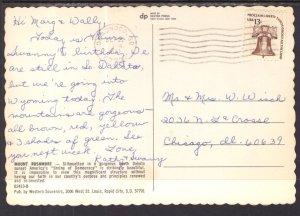 Hi Marg & Wally,
Today is
Swanny's birthday. We
are still in So Dakota,
but we're going into
Wyoming today. The
mountains are gorgeous
all brown, red, yellow
& 3 shades of green. See
you next week. Love,
Patt & Swanny
MOUNT RUSHMORE - Silhouetted in a gorgeous South Dakota
sunset America's "Shrine of Democracy" is strikingly beautiful.
It is impossible to view this magnificent structure without
having our faith in our country's purpose and principles renewed
and re-inspired.
Pub. by Western Souvenirs, 2006 West St. Louis, Rapid City, S.D. 57701
dp
PROCLAIM LIBERTY
USA
13c
Mr & Mrs. W.
2036 N La Crosse
Chicago, Ill- 60639